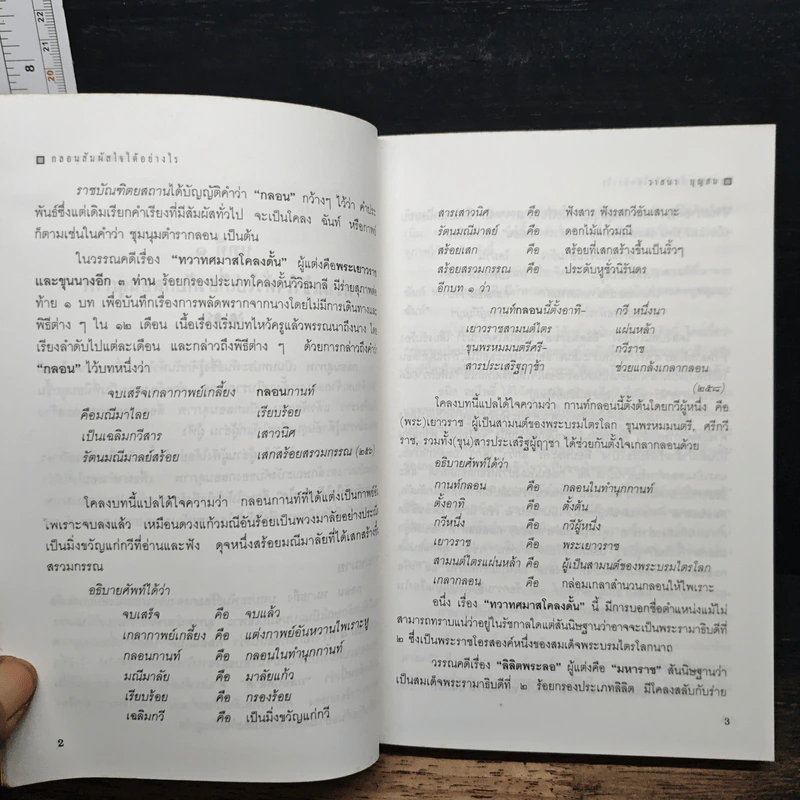 กลอนสัมผัสใจได้อย่างไร
ราชบัณฑิตยสถานได้บัญญัติคำว่า “กลอน” กว้างๆ ไว้ว่า คำประ
พันธ์ซึ่งแต่เดิมเรียกคำเรียงที่มีสัมผัสทั่วไป จะเป็นโคลง ฉันท์ หรือกาพย์
ก็ตามเช่นในคำว่า ชุมนุมตำรากลอน เป็นต้น
ในวรรณคดีเรื่อง “ทวาทศมาสโคลงดั้น” ผู้แต่งคือพระเยาวราช
และขุนนางอีก ๓ ท่าน ร้อยกรองประเภทโคลงดั้นวิวิธมาลี มีร่ายสุภาพต่อ
ท้าย ๑ บท เพื่อบันทึกเรื่องการพลัดพรากจากนางโดยไม่มีการเดินทางและ
พิธีต่าง ๆ ใน ๑๒ เดือน เนื้อเรื่องเริ่มบทไหว้ครูแล้วพรรณนาถึงนาง โดย
เรียงลำดับไปแต่ละเดือน และกล่าวถึงพิธีต่าง ๆ ด้วยการกล่าวถึงคำว่า
“กลอน” ไว้บทหนึ่งว่า
จบเสร็จเกลากาพย์เกลี้ยง กลอนกานท์
คือมณีมาไลย เรียบร้อย
เป็นเฉลิมกวีสาร เสาวนิศ
รัตนมณีมาลย์สร้อย เสกสร้อยสรวมกรรณ (๒๕๖)
โคลงบทนี้แปลได้ใจความว่า กลอนกานท์ที่ได้แต่งเป็นกาพย์อัน
ไพเราะจบลงแล้ว เหมือนดวงแก้วมณีอันร้อยเป็นพวงมาลัยอย่างประณีต
เป็นมิ่งขวัญแก่กวีที่อ่านและฟัง ดุจหนึ่งสร้อยมณีมาลัยที่ได้เสกสร้างขึ้น
สรวมกรรณ
อธิบายศัพท์ได้ว่า
จบเสร็จ คือ จบแล้ว
เกลากาพย์เกลี้ยง คือ แต่งกาพย์อันหวานไพเราะหู
กลอนกานท์ คือ กลอนในทำนุกกานท์
มณีมาลัย คือ มาลัยแก้ว
เรียบร้อย คือ กรองร้อย
เฉลิมกวี คือ เป็นมิ่งขวัญแก่กวี
2
วาสนา บุญสม
สารเสาวนิศ คือ ฟังสาร ฟังรสกวีอันเสนาะ
รัตนมณีมาลย์ คือ ดอกไม้แก้วมณี
สร้อยเสก คือ สร้อยที่เสกสร้างขึ้นเป็นริ้วๆ
สร้อยสรวมกรรณ คือ ประดับหูชั่วนิรันดร
อีกบท ๑ ว่า
กานท์กลอนนี้ตั้งอาทิ- กวี หนึ่งนา
เยาวราชสามนต์ไตร แผ่นหล้า
ขุนพรหมมนตรีศรี- กวีราช
สารประเสริฐฦๅช้า ช่วยแกล้งเกลากลอน
(๒๕๘)
โคลงบทนี้แปลได้ใจความว่า กานท์กลอนนี้ตั้งต้นโดยกวีผู้หนึ่ง คือ
(พระ)เยาวราช ผู้เป็นสามนต์ของพระบรมไตรโลก ขุนพรหมมนตรี, ศรีกวี
ราช, รวมทั้ง(ขุน)สารประเสริฐผู้ฦๅชา ได้ช่วยกันตั้งใจเกลากลอนด้วย
อธิบายศัพท์ได้ว่า
กานท์กลอน คือ กลอนในทำนุกกานท์
ตั้งอาทิ คือ ตั้งต้น
กวีหนึ่ง คือ กวีผู้หนึ่ง
เยาวราช คือ พระเยาวราช
สามนต์ไตรแผ่นหล้า คือ ผู้เป็นสามนต์ของพระบรมไตรโลก
เกลากลอน คือ กล่อมเกลาสำนวนกลอนให้ไพเราะ
อนึ่ง เรื่อง “ทวาทศมาสโคลงดั้น” นี้ มีการบอกชื่อตำแหน่งแม้ไม่
สามารถทราบแน่ว่าอยู่ในรัชกาลใดแต่สันนิษฐานว่าอาจจะเป็นพระรามาธิบดีที่
๒ ซึ่งเป็นพระราชโอรสองค์หนึ่งของสมเด็จพระบรมไตรโลกนาถ
วรรณคดีเรื่อง “ลิลิตพระลอ” ผู้แต่งคือ “มหาราช” สันนิษฐานว่า
เป็นสมเด็จพระรามาธิบดีที่ ๒ ร้อยกรองประเภทลิลิต มีโคลงสลับกับร่าย
3
8
22
21
20